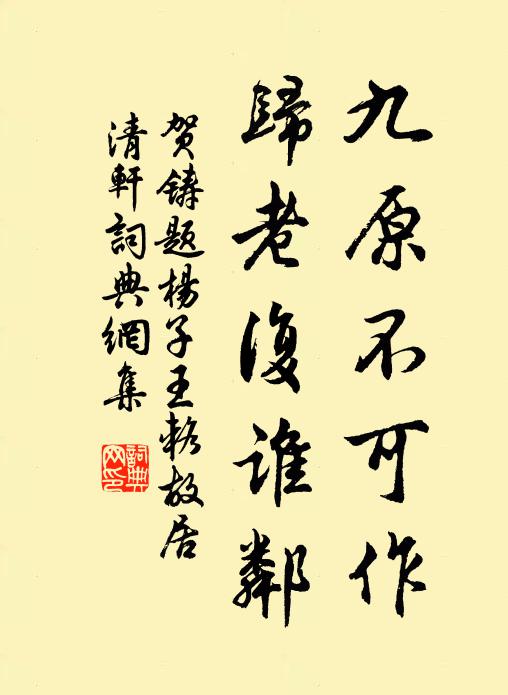 九原不可作
歸老復誰鄰
贺鑄題楊子王輅故居
清軒詞典網集
詞典
网印